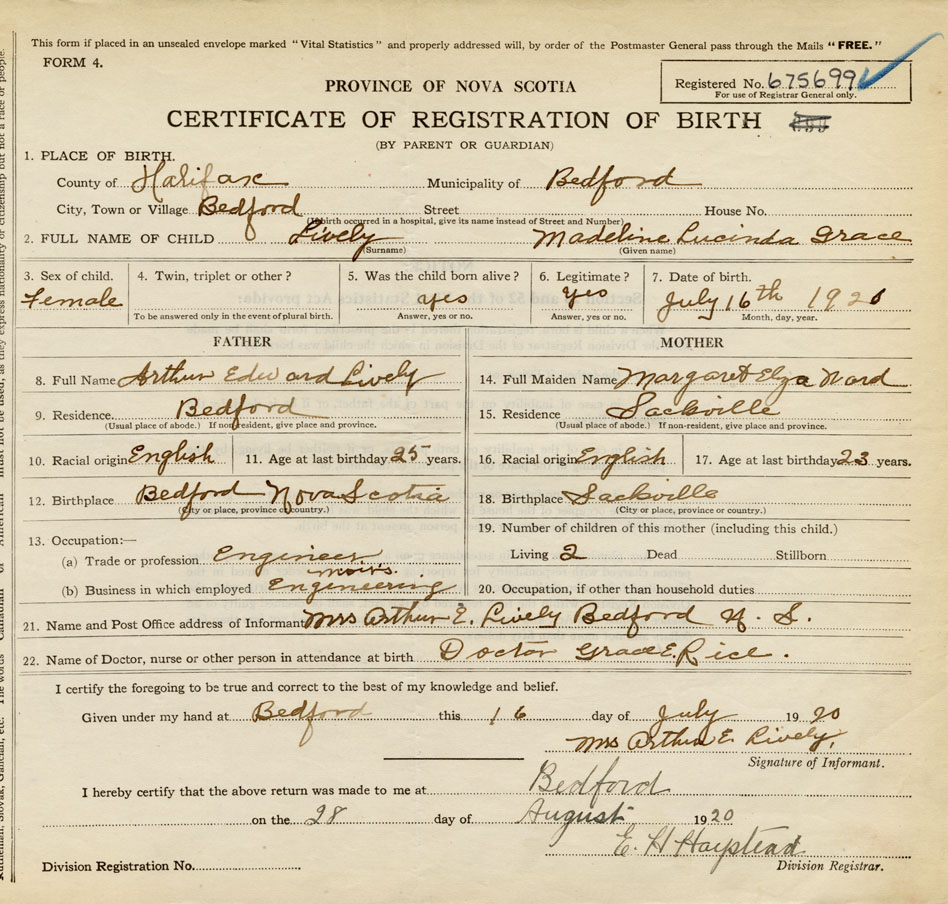 This form if placed in an unsealed envelope marked "Vital Statistics" and properly addressed will, by order of the Postmaster General pass through the Mails "FREE."
FORM 4.
Registered No. 675699
For use of Registrar General only.
PROVINCE OF NOVA SCOTIA
CERTIFICATE OF REGISTRATION OF BIRTH
(BY PARENT OR GUARDIAN)
1. PLACE OF BIRTH.
County of Halifax Municipality of Bedford
City, Town or Village Bedford Street House No.
(If birth occurred in a hospital, give its name instead of Street and Number)
2. FULL NAME OF CHILD Lively Madeline Lucinda Grace
(Surname) (Given name)
3. Sex of child. 4. Twin, triplet or other? 5. Was the child born alive? 6. Legitimate? 7. Date of birth.
Female yes yes July 16th 1920
To be answered only in the event of plural birth. Answer, yes or no. Answer, yes or no. Month, day, year.
FATHER MOTHER
8. Full Name Arthur Edward Lively 14. Full Maiden Name Margaret Elza Ward
9. Residence Bedford 15. Residence Sackville
(Usual place of abode.) If non-resident, give place and province. (Usual place of abode.) If non-resident, give place and province.
10. Racial origin English 11. Age at last birthday 25 years. 16. Racial origin English 17. Age at last birthday 23 years.
12. Birthplace Bedford Nova Scotia 18. Birthplace Sackville
(City or place, province or country.) (City or place, province or country.)
13. Occupation:— 19. Number of children of this mother (including this child.)
(a) Trade or profession Engineer Living 2 Dead Stillborn
moirs.
(b) Business in which employed Engineering 20. Occupation, if other than household duties
21. Name and Post Office address of Informant Mrs Arthur E. Lively Bedford N. S.
22. Name of Doctor, nurse or other person in attendance at birth Doctor Grace E. Rice.
I certify the foregoing to be true and correct to the best of my knowledge and belief.
Given under my hand at Bedford this 16 day of July 1920
Mrs Arthur E. Lively.
Signature of Informant.
I hereby certify that the above return was made to me at Bedford
on the 28 day of August 1920
E. H Haystead
Division Registration No. Division Registrar.